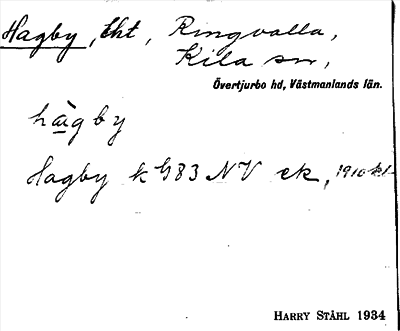 Hagby, lht, Ringvalla,
Kila sn,
Övertjurbo hd, Västmanlands län.
hàgby
Hagby k G83 NV ek, 1910 kl
HARRY STÅHL 1934